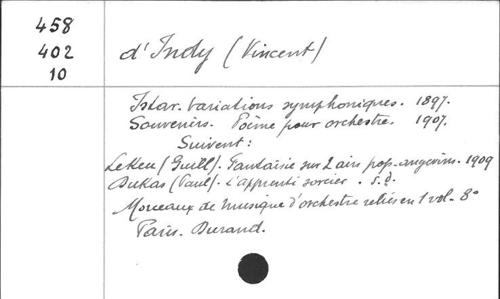 458
402
10
d'Indy (Vincent)
Istar. Variations symphoniques. 1897.
Souvenirs. Poème pour orchestre 1907.
Suivent:
Lekeu (Guill). Fantaisie sur 2 airs pop. angevins. 1909
Dukas (Paul). L'apprenti sorcier. s.d.
Morceaux de musique d'orchestre reliés en 1 vol. 8°
Paris. Durand.